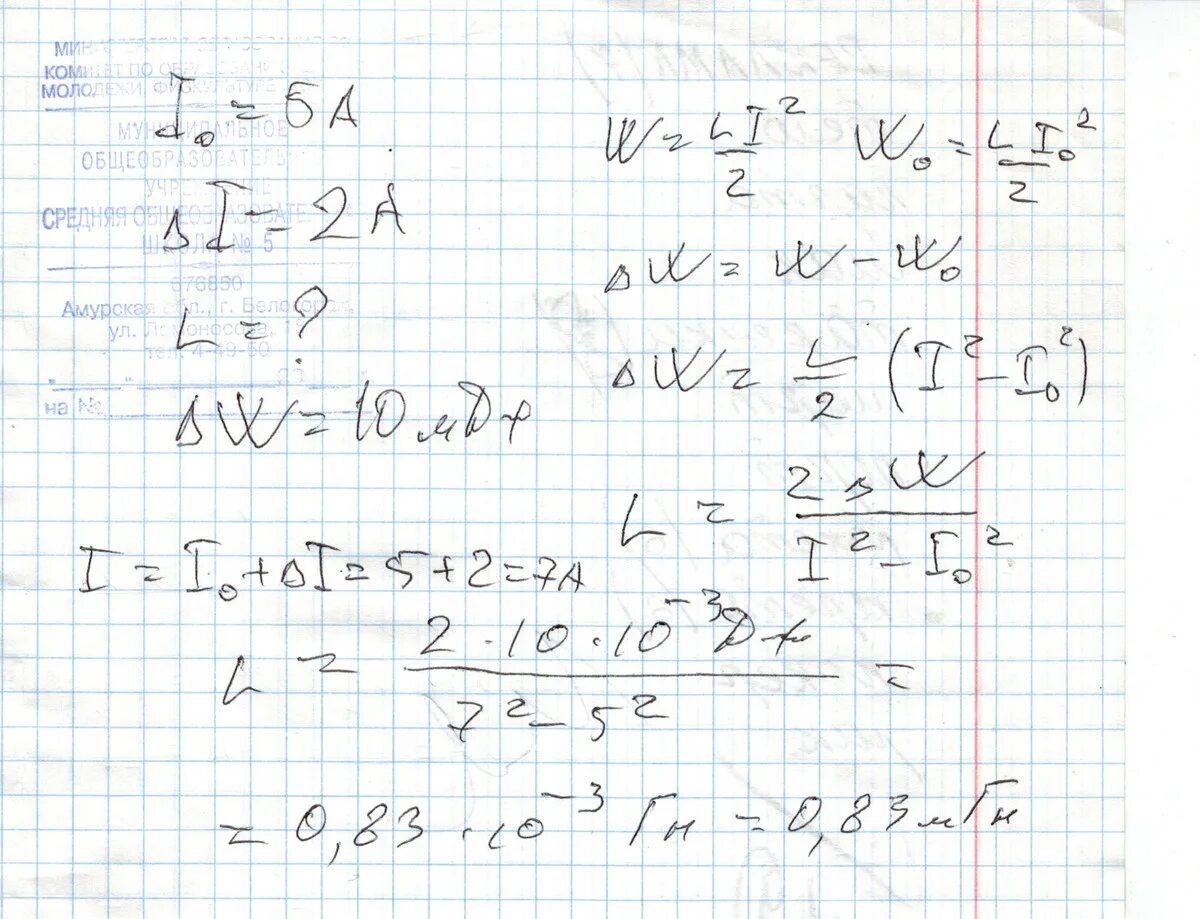 МИНИСТЕРСТВО
КОМИТЕТ ПО
МОЛОДЕЖИ, ФИЗКУЛЬТУРЕ
МУНИЦИПАЛЬНОЕ
ОБЩЕОБРАЗОВАТЕЛЬНОЕ
УЧРЕЖДЕНИЕ
СРЕДНЯЯ ОБЩЕОБРАЗОВАТЕ
ШКОЛА № 5
676850
Амурская обл., г. Белогорск,
ул. Ломоносова,
тел. 4-49-50
на №
I₀ = 5 А
ΔI = 2 А
L = ?
ΔW = 10 мДж
I = I₀ + ΔI = 5 + 2 = 7 А
W = LI²/2 W₀ = LI₀²/2
ΔW = W − W₀
ΔW = L/2 (I² − I₀²)
L = 2ΔW / I² − I₀²
L = 2 · 10 · 10⁻³ Дж / 7² − 5² =
= 0,83 · 10⁻³ Гн = 0,83 мГн